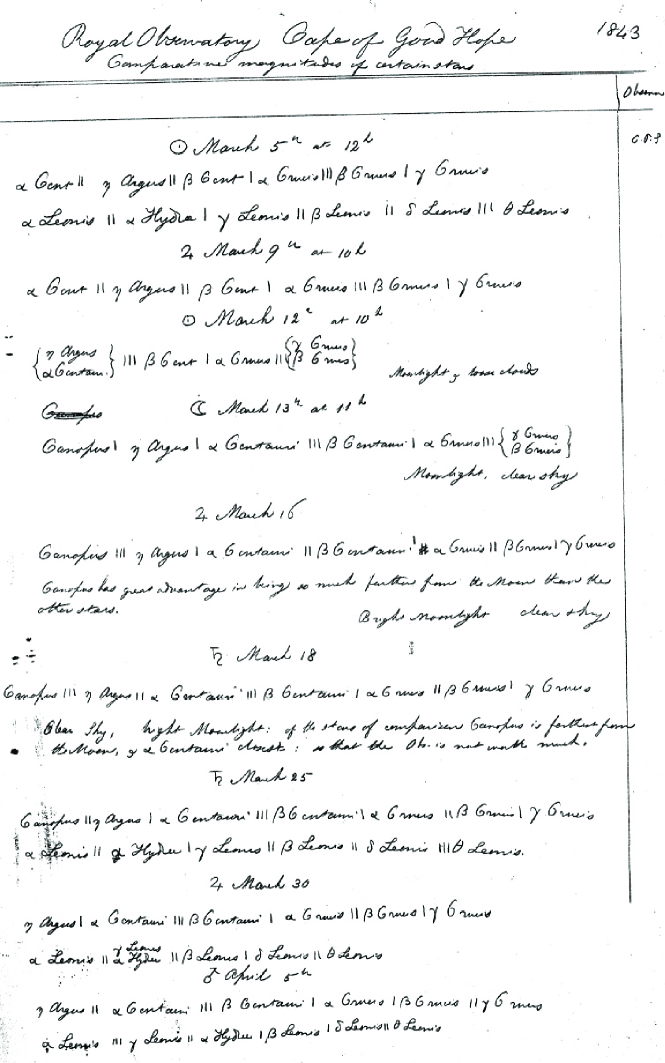 1843
Royal Observatory Cape of Good Hope
Comparative magnitudes of certain stars
Observer
☉ March 5th at 12h
C.P.S
α Cent || η Argus || β Cent | α Crucis ||| β Crucis | γ Crucis
α Leonis || α Hydra | γ Leonis || β Leonis || δ Leonis ||| θ Leonis
♃ March 9th at 10h
α Cent || η Argus || β Cent | α Crucis ||| β Crucis | γ Crucis
☉ March 12th at 10h
{η Argus α Centauri} ||| β Cent | α Crucis || {γ Crucis β Crucis}
Moonlight & loose clouds
☾ March 13th at 11h
Canopus | η Argus | α Centauri ||| β Centauri | α Crucis ||| {γ Crucis β Crucis}
Moonlight, clear sky
♃ March 16
Canopus ||| η Argus | α Centauri || β Centauri | α Crucis || β Crucis | γ Crucis
Canopus has great advantage in being so much farther from the Moon than the
other stars.
Bright Moonlight clear sky
♄ March 18
Canopus ||| η Argus || α Centauri ||| β Centauri | α Crucis || β Crucis | γ Crucis
Clear Sky, bright Moonlight: of the stars of comparison Canopus is farthest from
the Moon, & α Centauri closest: so that the Obs. is not worth much.
♄ March 25
Canopus || η Argus | α Centauri ||| β Centauri | α Crucis || β Crucis | γ Crucis
α Leonis || α Hydra | γ Leonis || β Leonis || δ Leonis ||| θ Leonis.
♃ March 30
η Argus | α Centauri ||| β Centauri | α Crucis || β Crucis | γ Crucis
α Leonis || γ Leonis α Hydra || β Leonis | δ Leonis || θ Leonis
♂ April 5th
η Argus || α Centauri ||| β Centauri | α Crucis | β Crucis || γ Crucis
α Leonis ||| γ Leonis || α Hydra | β Leonis | δ Leonis || θ Leonis